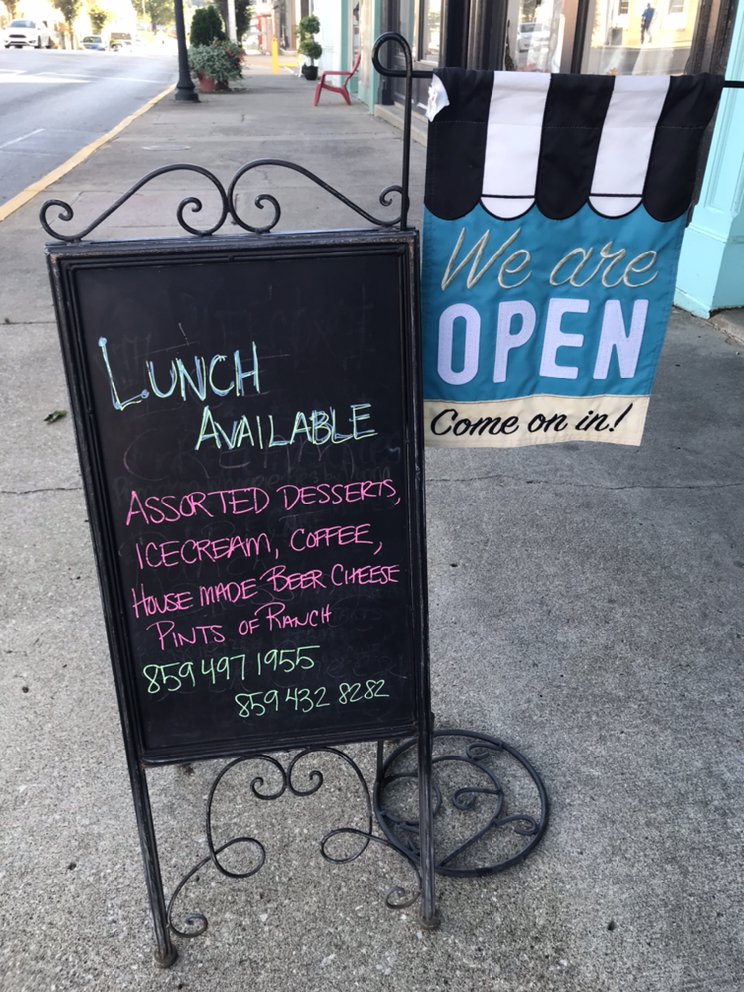 LUNCH
AVAILABLE
ASSORTED DESSERTS,
ICECREAM, COFFEE,
HOUSE MADE BEER CHEESE
PINTS OF RANCH
859 497 1955
859 432 8282
We are
OPEN
Come on in!